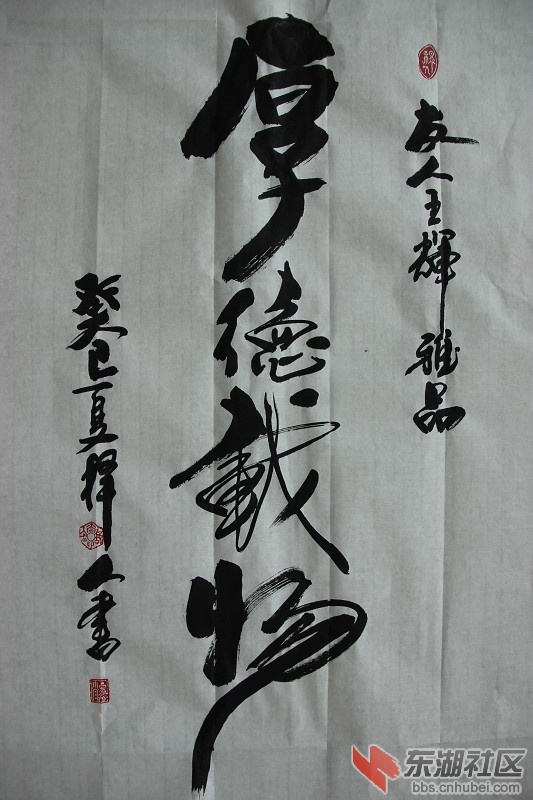 友人王輝雅品
厚德載物
癸巳夏樺人書
东湖社区
bbs.cnhubei.com